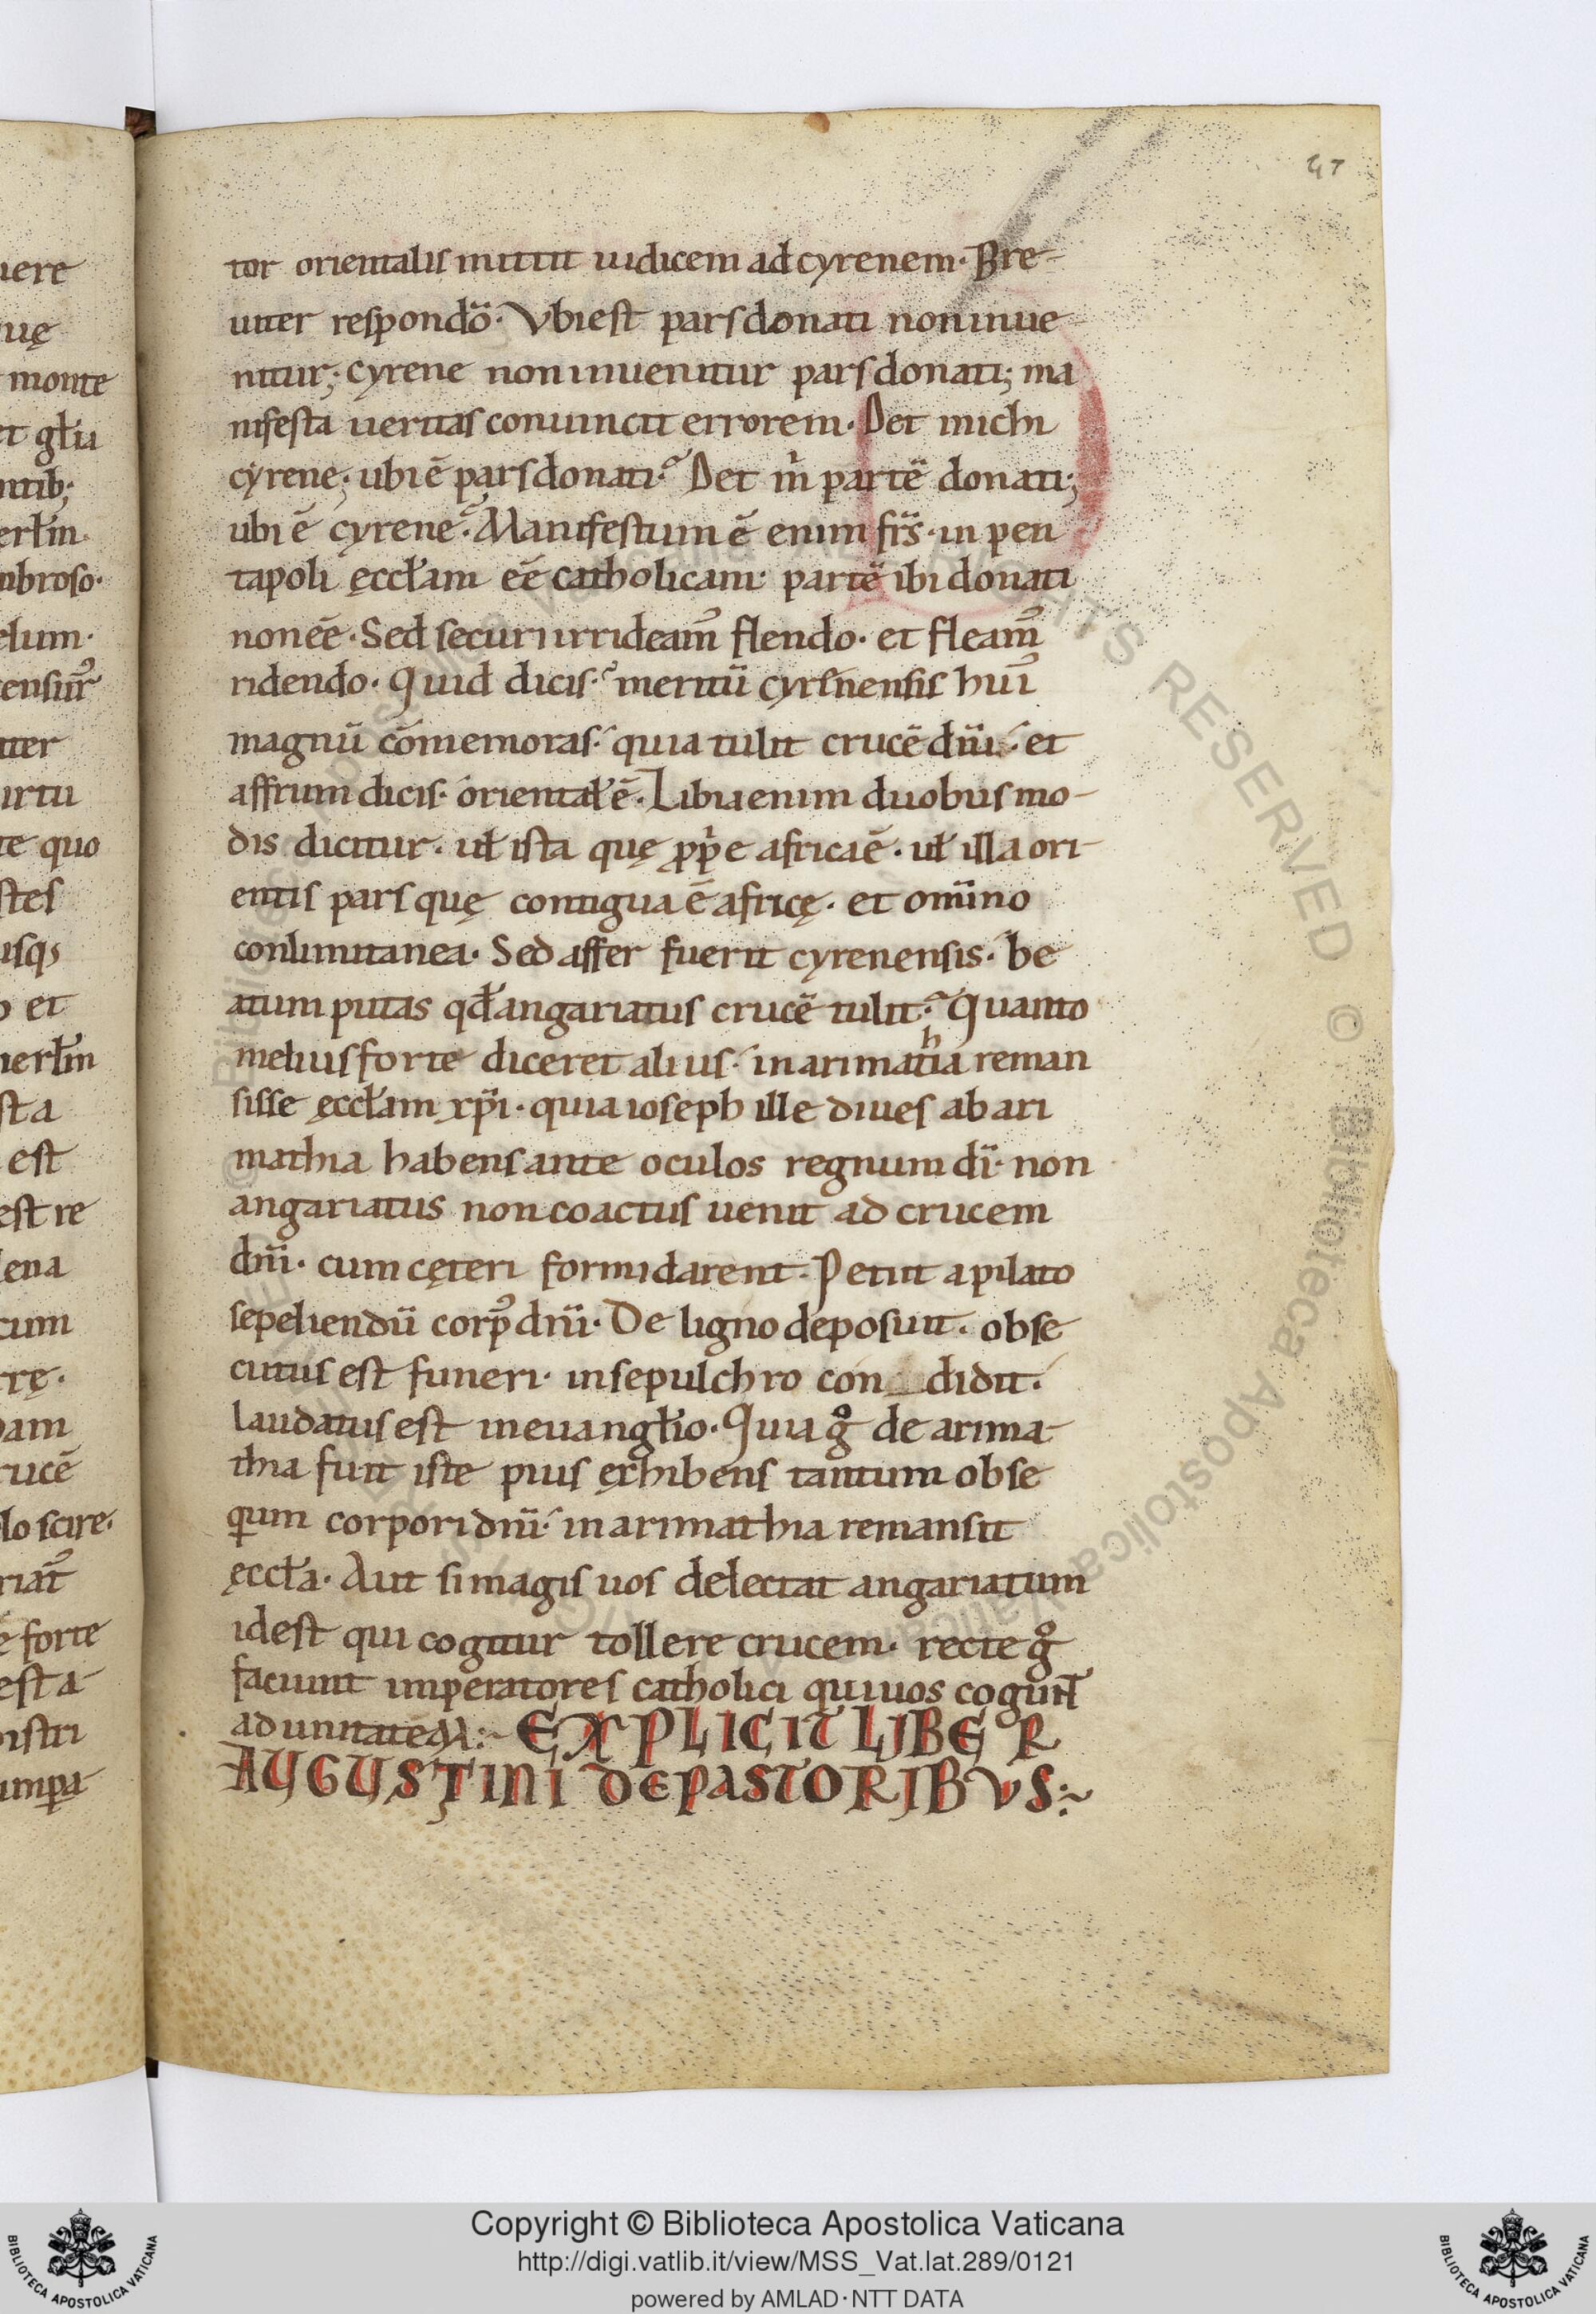 47
tor orientalis mittit iudicem ad cyrenem. Bre-
uiter respondō. Vbi est pars donati non inue
nitur; cyrene non inuenitur pars donati; ma
nifesta ueritas conuincit errorem. Det michi
cyrene; ubi ē pars donati? Det m̄ partē donati;
ubi ē cyrene? Manifestum ē enim fr̄s. in pen
tapoli ęccłam eē catholicam. partē ibi donati
non eē. Sed securi irrideam᷒ flendo. et fleam᷒
ridendo. Quid dicis? meritū cyrinensis hui᷒
magnū cōmemoras. quia tulit crucē dn̄i. et
affrum dicis. orientał ē. Libia enim duobus mo-
dis dicitur. uł ista quę ꝓpͥe africa ē. uł illa ori-
entis pars quę contigua ē africę. et omīno
conlimitanea. Sed affer fuerit cyrenensis. be
atum putas qđ angariatus crucē tulit? Quanto
melius forte diceret alius. in arimathia reman
sisse ęccłam xp̄i. quia ioseph ille diues ab ari
mathia habens ante oculos regnum dī. non
angariatus non coactus uenit ad crucem
dn̄i. cum cęteri formidarent. Petiit a pilato
sepeliendū corp᷒ dn̄i. De ligno deposuit. obse
cutus est funeri. in sepulchro con didit.
laudatus est in euangłio. Quia gͦ de arima-
thia fuit iste pius ęxhibens tantum obse
qium corpori dn̄i. in arimathia remansit
ęccła. Aut si magis uos delectat angariatum
id est qui cogitur tollere crucem. recte gͦ
faciunt imperatores catholici qui uos cogunt
ad unitateM:~ EXPLICIT LIBER
AUGUSTINI DE PASTORIBVS:~
uere
uę
monte
et głia
ntib;
erłm.
mbroso.
elum.
tensur᷒
iter
irtu
te quo
stes
usq;
o et
ierłm
sta
est
est re
lena
cum
rę.
dam
rucē
lo scire.
riat᷒
e forte
esta
nistri
impa-
© Biblioteca Apostolica Vaticana
RESERVED
Copyright © Biblioteca Apostolica Vaticana
http://digi.vatlib.it/view/MSS_Vat.lat.289/0121
powered by AMLAD·NTT DATA
BIBLIOTECA APOSTOLICA VATICANA
BIBLIOTECA APOSTOLICA VATICANA